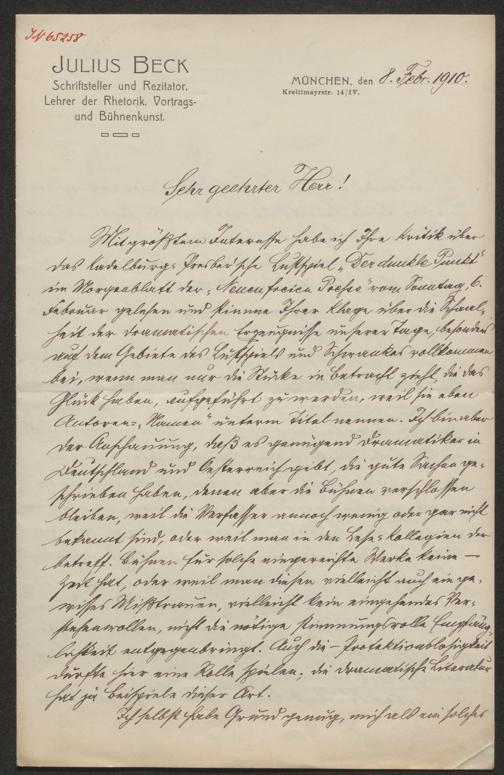 JN 65258
JULIUS BECK
Schriftsteller und Rezitator.
Lehrer der Rhetorik, Vortrags-
und Bühnenkunst.
MÜNCHEN, den 8. Febr. 1910.
Kreittmayrstr. 14/IV.
Sehr geehrter Herr!
Mit größtem Interesse habe ich Ihre Kritik über
das Kadelburg-Presber'sche Lustspiel „Der dunkle Punkt"
im Morgenblatt der „Neuen freien Presse" vom Sonntag, 6.
Februar gelesen und stimme Ihrer Klage über die Schaal-
heit der dramatischen Erzeugnisse unserer Tage, besonders
auf dem Gebiete des Lustspiels und Schwankes vollkommen
bei, wenn man nur die Stücke in Betracht zieht, die das
Glück haben, aufgeführt zu werden, weil sie eben
Autoren-„Namen" unterm Titel nennen. Ich bin aber
der Anschauung, daß es genügend Dramatiker in
Deutschland und Oesterreich gibt, die gute Sachen ge-
schrieben haben, denen aber die Bühnen verschlossen
bleiben, weil die Verfasser annoch wenig oder gar nicht
bekannt sind, oder weil man in den Lese-Kollegien der
betreff. Bühnen für solche eingereichte Werke keine —
Zeit hat, oder weil man diesen vielleicht auch ein ge-
wisses Mißtrauen, vielleicht kein eingehendes Ver-
stehenwollen, nicht die nötige stimmungsvolle Empfäng-
lichkeit entgegenbringt. Auch die — Protektionslosigkeit
dürfte hier eine Rolle spielen; die dramatische Literatur
hat ja Beispiele dieser Art.
Ich selbst habe Grund genug, mich als ein solcher